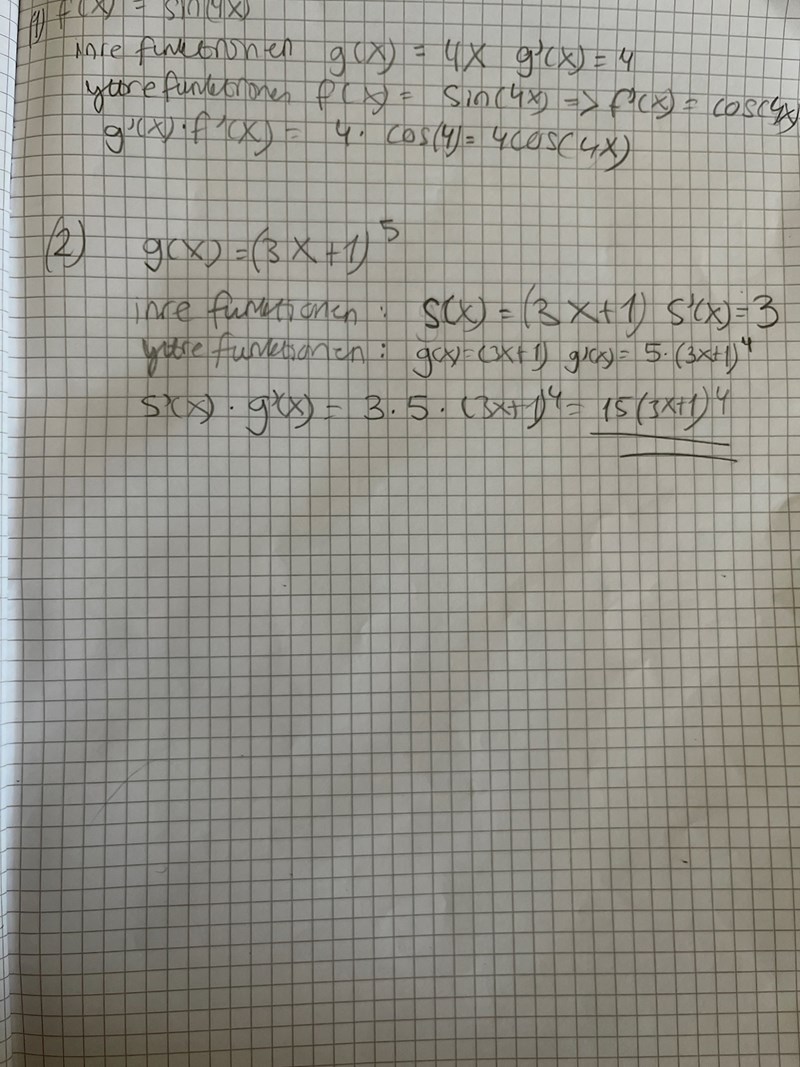 (1) f(x) = sin(4x)
inre funktionen g(x) = 4x g'(x) = 4
yttre funktionen f(x) = sin(4x) => f'(x) = cos(4x)
g'(x) · f'(x) = 4 · cos(4) = 4cos(4x)
(2) g(x) = (3x+1)^5
inre funktionen : s(x) = (3x+1) s'(x) = 3
yttre funktionen : g(x) = (3x+1) g'(x) = 5 · (3x+1)^4
s'(x) · g'(x) = 3 · 5 · (3x+1)^4 = 15(3x+1)^4